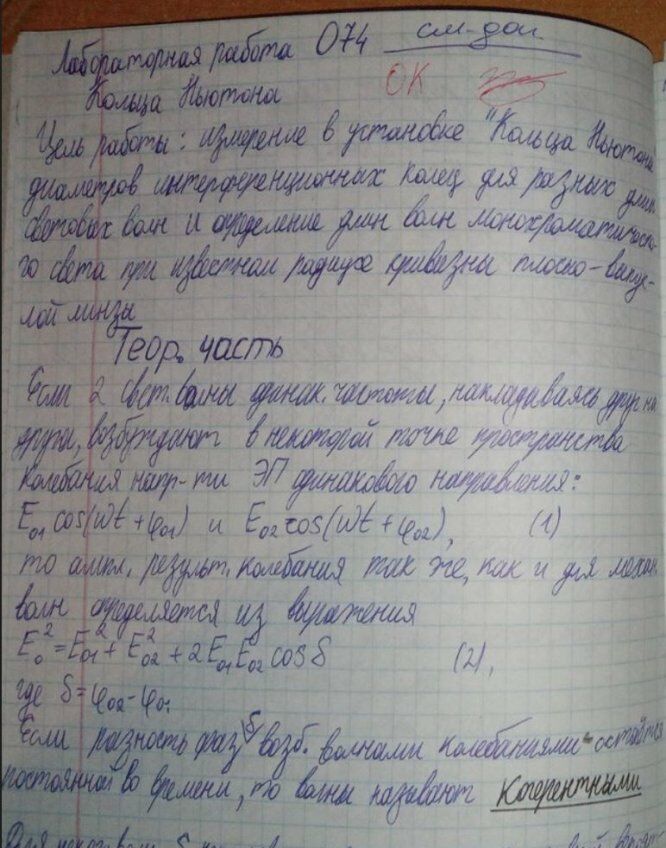 Лабораторная работа 074 см. доп.
Кольца Ньютона ОК
Цель работы: измерение в установке "Кольца Ньютона
диаметров интерференционных колец для разных длин
световых волн и определение длин волн монохроматическо-
го света при известном радиусе кривизны плоско-выпук-
лой линзы
Теор. часть
Если 2 свет. волны одинак. частоты, накладываясь друг на
друга, возбуждают в некоторой точке пространства
колебания напр-ти ЭП одинакового направления:
E₀₁ cos(ωt + φ₀₁) и E₀₂ cos(ωt + φ₀₂), (1)
то ампл. результ. колебания так же, как и для механ.
волн определяется из выражения
E₀² = E₀₁² + E₀₂² + 2E₀₁E₀₂ cos δ (2),
где δ = φ₀₂ - φ₀₁
Если разность фаз δ возб. волнами колебаниями остаётся
постоянной во времени, то волны называют когерентными